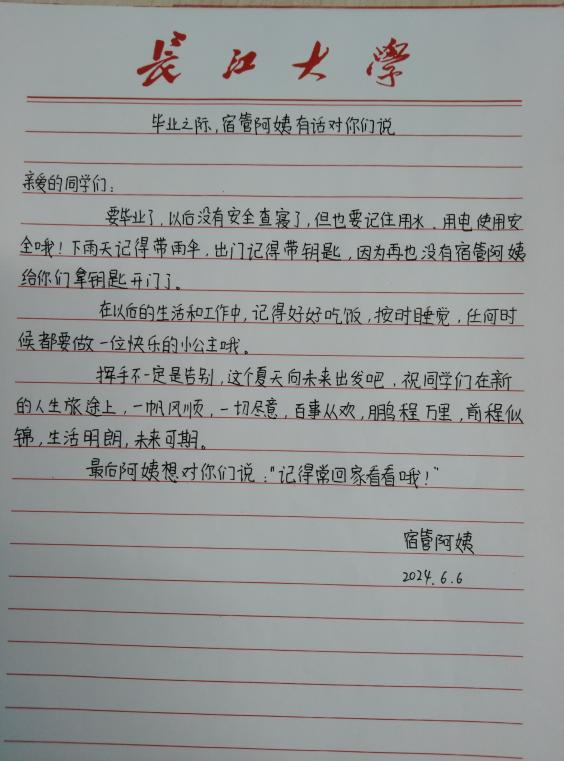 長江大學
毕业之际，宿管阿姨有话对你们说
亲爱的同学们：
要毕业了，以后没有安全查寝了，但也要记住用水、用电使用安
全哦！下雨天记得带雨伞，出门记得带钥匙，因为再也没有宿管阿姨
给你们拿钥匙开门了。
在以后的生活和工作中，记得好好吃饭，按时睡觉，任何时
候都要做一位快乐的小公主哦。
挥手不一定是告别，这个夏天向未来出发吧，祝同学们在新
的人生旅途上，一帆风顺，一切尽意，百事从欢，鹏程万里，前程似
锦，生活明朗，未来可期。
最后阿姨想对你们说：“记得常回家看看哦！”
宿管阿姨
2024.6.6